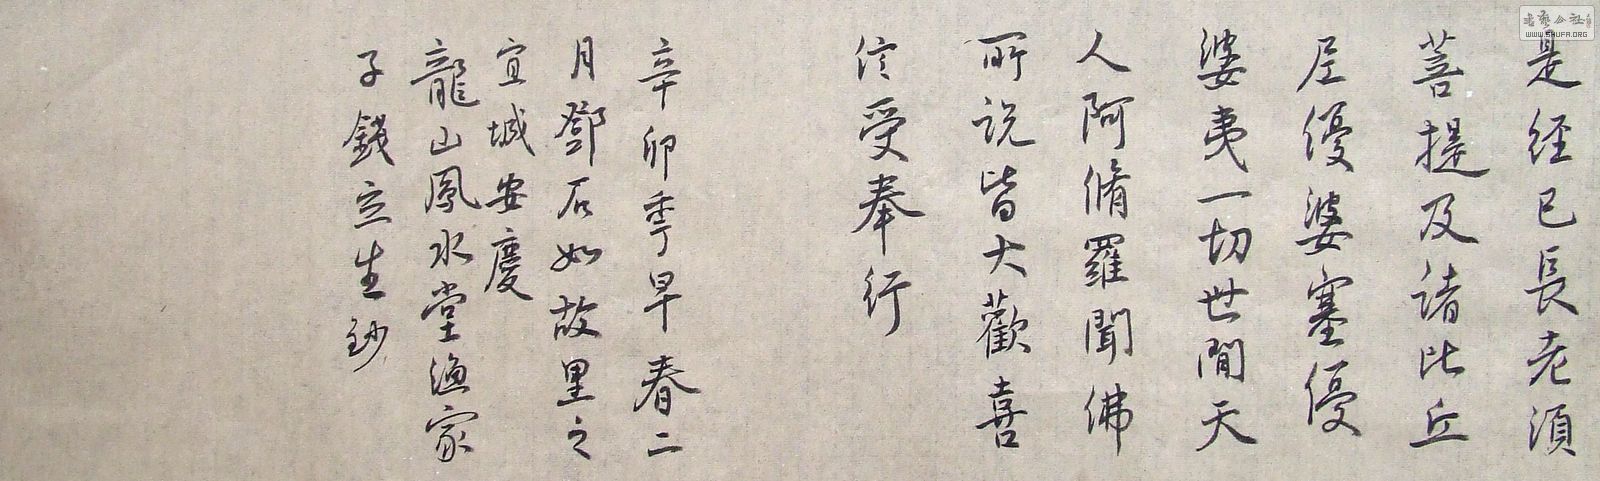 是经已長老須
菩提及诸比丘
尼優婆塞優
婆夷一切世間天
人阿脩羅聞佛
所说皆大歡喜
信受奉行
辛卯季早春二
月鄧石如故里之
宜城安慶
龍山鳳水堂漁家
子錢立生钞
WWW.SHUFA.ORG